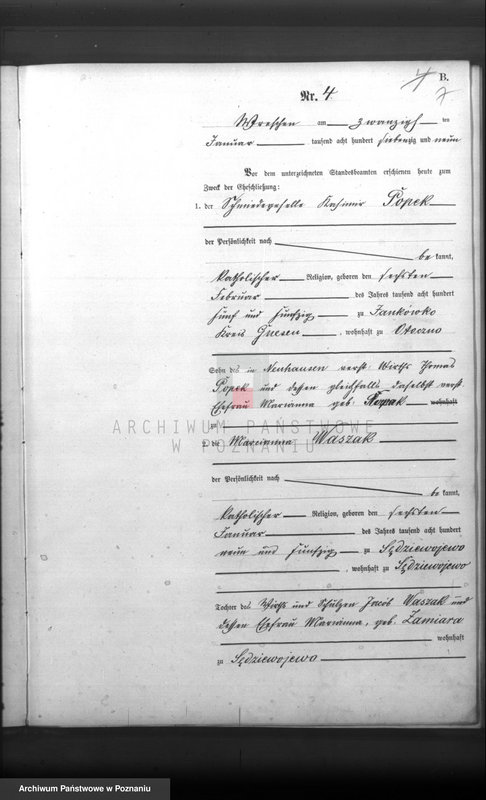 4 B.
7
Nr. 4.
Wreschen am zwanzigsten
Januar tausend acht hundert siebenzig und neun
Vor dem unterzeichneten Standesbeamten erschienen heute zum
Zweck der Eheschließung:
1. der Schmiedegeselle Kasimir Popek
der Persönlichkeit nach
bekannt,
katholischer Religion, geboren den sechsten
Februar des Jahres tausend acht hundert
fünf und fünfzig zu Jankówko
Kreis Gnesen, wohnhaft zu Otoczno
Sohn des in Neuhausen verst. Wirths Thomas
Popek und dessen gleichfalls daselbst verst.
Ehefrau Marianna geb. wohnhaft
zu
ARCHIWUM PAŃSTWOWE
W POZNANIU
2. die Marianna Waszak
der Persönlichkeit nach
bekannt,
katholischer Religion, geboren den sechsten
Januar des Jahres tausend acht hundert
neun und fünfzig zu Sędziwojewo
, wohnhaft zu Sędziwojewo
Tochter des Wirths und Schulzen Jacob Waszak und
dessen Ehefrau Marianna, geb. Zamiara
wohnhaft
zu Sędziwojewo
Archiwum Państwowe w Poznaniu